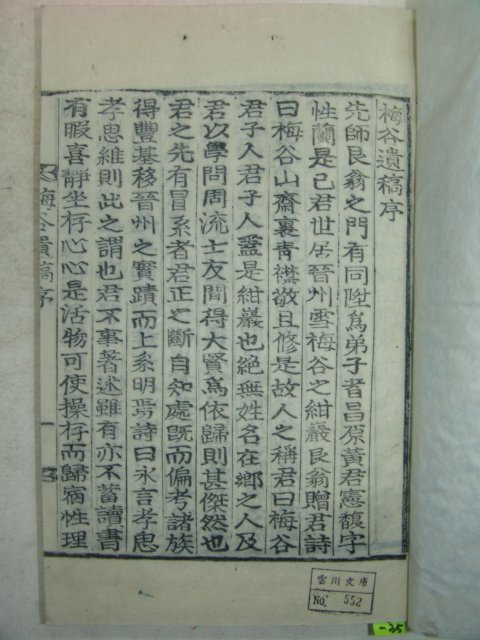 梅谷遺稿序
先師艮翁之門有同陞爲弟子者昌原黃君憲馥字
性蘭是已君世居晉州雪梅谷之紺巖艮翁贈君詩
曰梅谷山齋裏靑襟敬且修是故人之稱君曰梅谷
君子人君子人蓋是紺巖也絶無姓名在鄕之人及
君以學問周流士友聞得大賢爲依歸則甚傑然也
君之先有冒系者君正之斷自知處旣而偏考諸族
得豐基移晉州之實蹟而上系明焉詩曰永言孝思
孝思維則此之謂也君不事著述雖有亦不蓄讀書
有暇喜靜坐存心心是活物可使操存而歸宿性理
梅谷遺稿序
一
雲川文庫
No. 552
-35